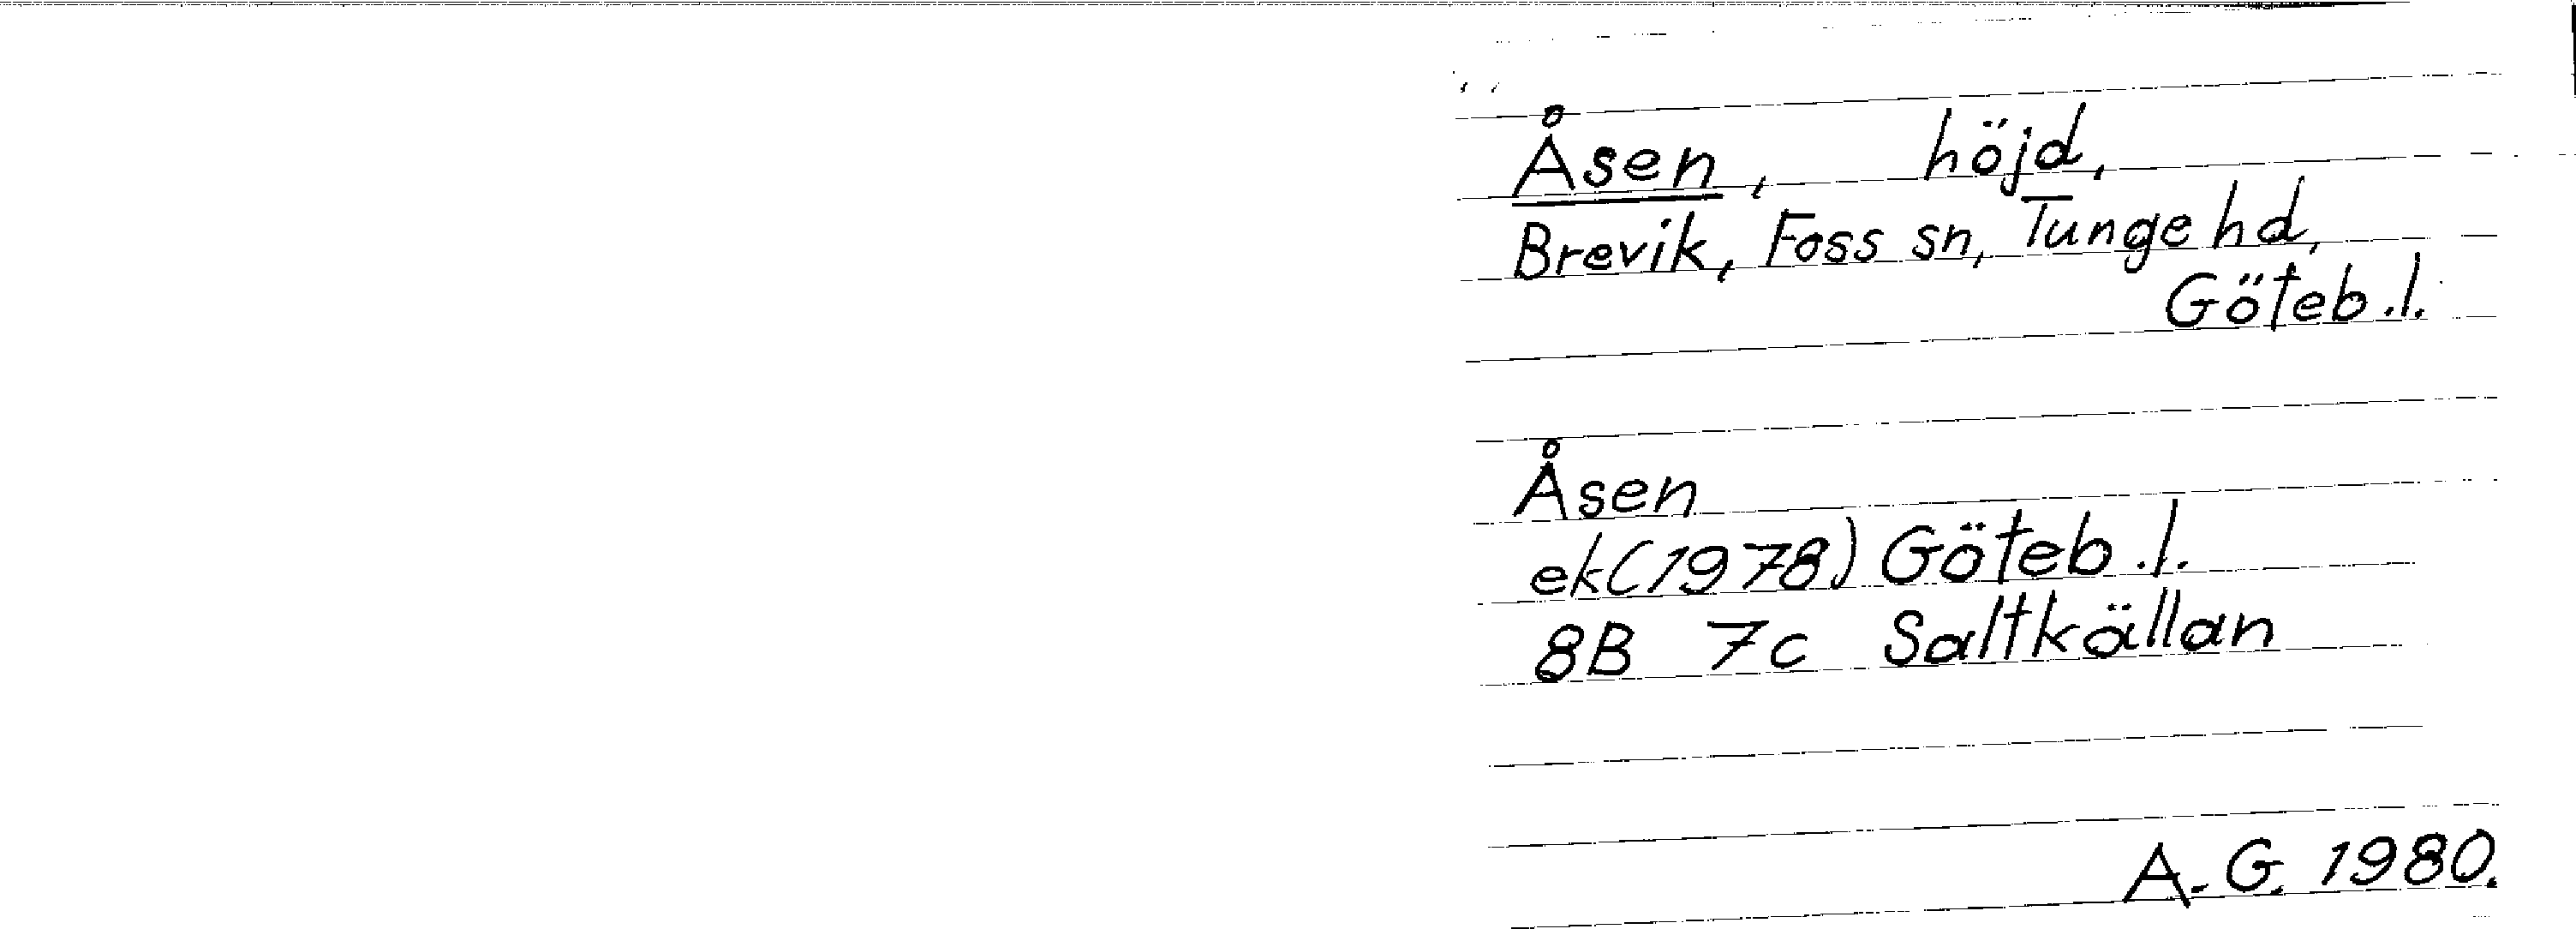 Åsen, höjd,
Brevik, Foss sn, Tunge hd,
Göteb.l.
Åsen
ek(1978) Göteb.l.
8B 7c Saltkällan
A.G. 1980.